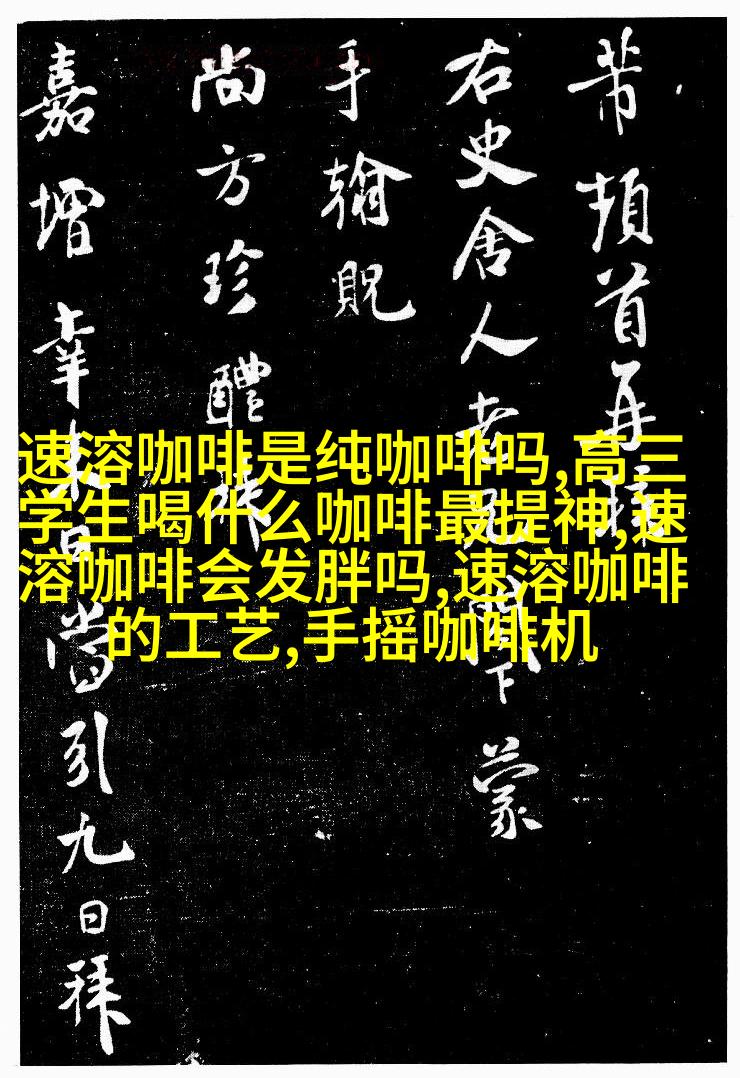 芾頓首再拜
右史舍人老兄閣下蒙
手翰貺
尚方珍醴
嘉增幸来日當引九日拜
速溶咖啡是纯咖啡吗,高三
学生喝什么咖啡最提神,速
溶咖啡会发胖吗,速溶咖啡
的工艺,手摇咖啡机